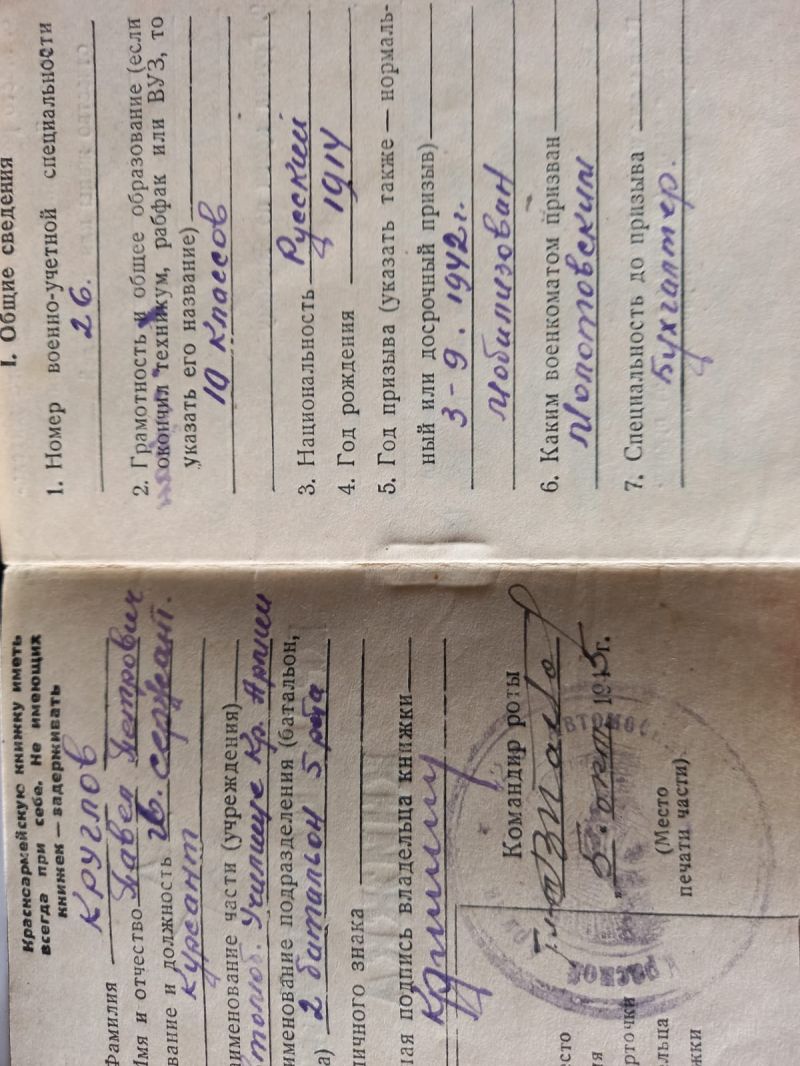 Красноармейскую книжку иметь
всегда при себе. Не имеющих
книжек — задерживать
Фамилия Круглов
Имя и отчество Павел Петрович
вание и должность гв. сержант.
курсант
аименование части (учреждения)
Училище Кр. Армии
именование подразделения (батальон,
а) 2 батальон 5 рота
личного знака
ная подпись владельца книжки
Командир роты
"5" окт 1945 г.
(Место
печати части)
есто
ия
рточки
льца
жки
I. Общие сведения
1. Номер военно-учетной специальности
26.
2. Грамотность и общее образование (если
окончил техникум, рабфак или ВУЗ, то
указать его название)
10 классов
3. Национальность Русский
4. Год рождения 1914
5. Год призыва (указать также — нормаль-
ный или досрочный призыв)
3-9. 1942 г.
мобилизован
6. Каким военкоматом призван
7. Специальность до призыва
Бухгалтер.